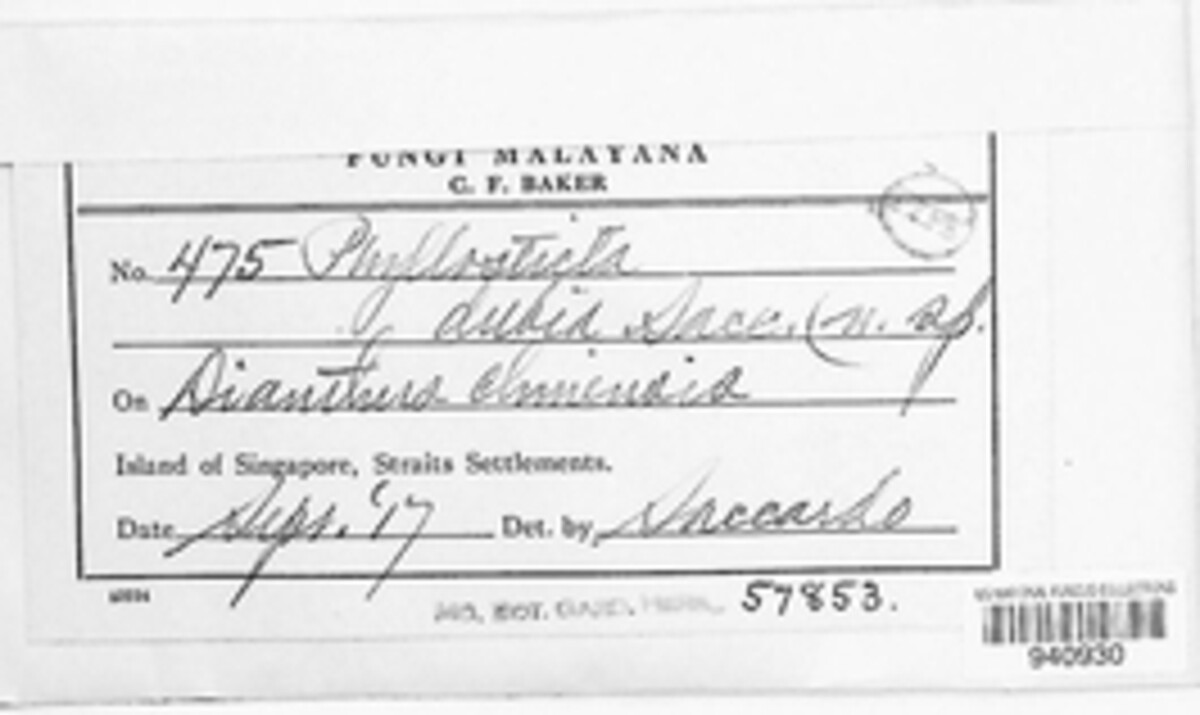 FUNGI MALAYANA
C. F. BAKER
No. 475 Phyllosticta
dubia Sacc. (n. sp.
On Dianthus chinensis
Island of Singapore, Straits Settlements.
Date Sept. '17 Det. by Saccardo
MO. BOT. GARD. HERB. 57853.
US NATIONAL FUNGUS COLLECTIONS
940930